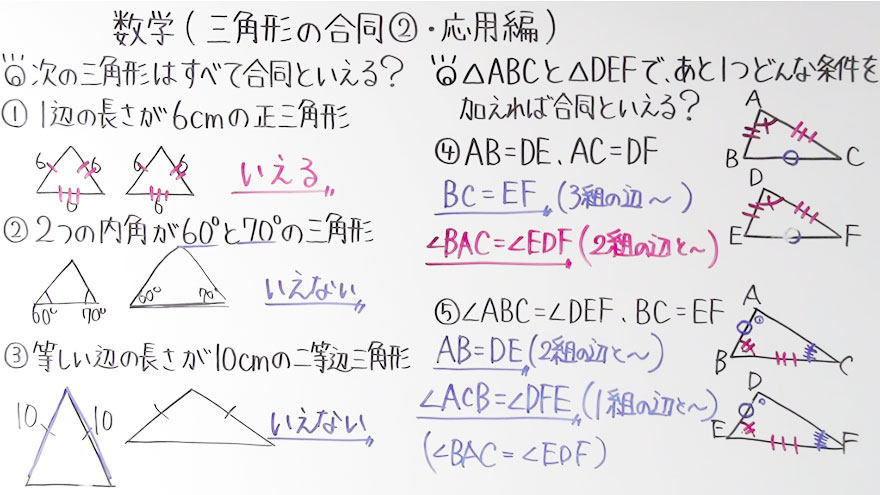 数学(三角形の合同②・応用編)
次の三角形はすべて合同といえる?
① 1辺の長さが6cmの正三角形
6 6 6
6 6 6
いえる
② 2つの内角が60°と70°の三角形
60° 70°
60° 70°
いえない
③ 等しい辺の長さが10cmの二等辺三角形
10 10
いえない
△ABCと△DEFで、あと1つどんな条件を
加えれば合同といえる?
④ AB=DE、AC=DF
BC=EF (3組の辺〜)
∠BAC=∠EDF (2組の辺と〜)
A
B C
D
E F
⑤ ∠ABC=∠DEF、BC=EF
AB=DE (2組の辺と〜)
∠ACB=∠DFE (1組の辺と〜)
(∠BAC=∠EDF)
A
B C
D
E F